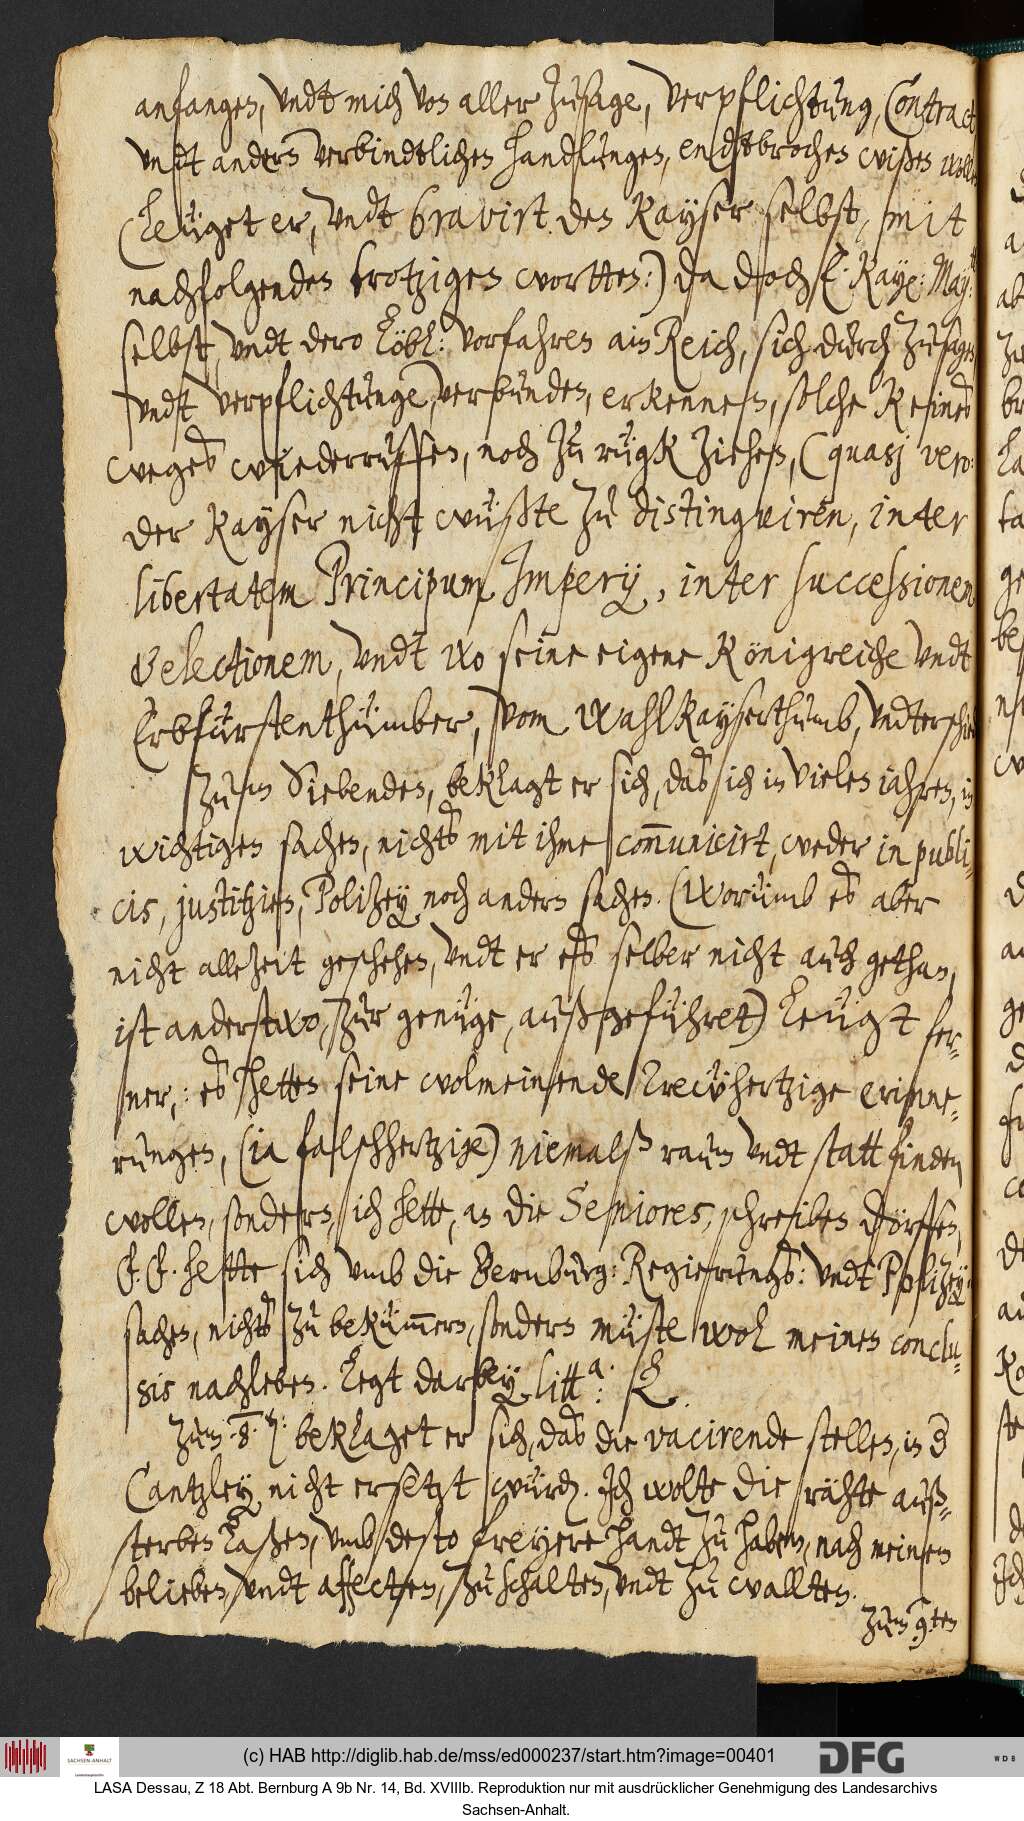 anfangen, undt mich von aller Zusage, verpflichtung, Contract
undt andern verbindtlichen handlungen, endtbrochen wißen wolle
(leüget er, undt bravirt den Kayser selbst, mit
nachfolgenden trotzigen wortten:) da doch E. Kay: May:tt
selbst, undt dero Löbl: vorfahren am Reich, sich durch Zusagen
undt verpflichtunge, verbunden, erkennen, solche Keines
weges wiederruffen, noch Zu rügk Ziehen, (quasj vero:
der Kayser nicht wüßte Zu distingviren, inter
libertatem Principum Imperÿ, inter successionem
& electionem, undt wo seine eigene Königreiche undt
Erbfürstenthümber, vom WahlKayserthumb, undterschie
Zum Siebenden, beklagt er sich, das ich in vielen iahren, in
wichtigen sachen, nichts mit ihme com̄unicirt, weder in publi-
cis, justitzien, Polizey noch andern sachen. (Worumb es aber
nicht allezeit geschehen, undt er es selber nicht auch gethan,
ist anderstwo, zur genüge, außgeführet) Leügt fer-
ner,: es hetten seine wolmeinende Trewhertzige erinne-
rungen, (ia falschhertzige) niemalß raum undt statt finden
wollen, sondern, ich hette, an die Seniores, schreiben dörffen,
E. E. hette sich umb die Bernburg: Regierungs: undt Polizey
sachen, nichts zu bekümm̄ern, sondern müste wol meinen conclu-
sis nachleben. Legt darbey litt.a: E.
Zum .8.ṅ: beklaget er sich, das die vacirende stellen, in der
Cantzley nicht ersetzt würden. Ich wolte die rähte auß-
sterben Laßen, umb desto freyere handt Zu haben, nach meinem
belieben, undt affecten, Zu schalten, undt Zu wallten.
Zum .9.ten
(c) HAB http://diglib.hab.de/mss/ed000237/start.htm?image=00401
SACHSEN-ANHALT
DFG
WDB
LASA Dessau, Z 18 Abt. Bernburg A 9b Nr. 14, Bd. XVIIIb. Reproduktion nur mit ausdrücklicher Genehmigung des Landesarchivs
Sachsen-Anhalt.